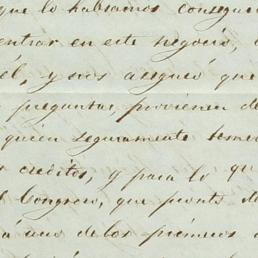 que lo habiamos conseguid
entrar en este negocio,
él, y nos aseguró que
preguntar, provienen de
quien seguramente teme
creditos, y para lo qu
Congreso, que pronto de
á uno de los primeros